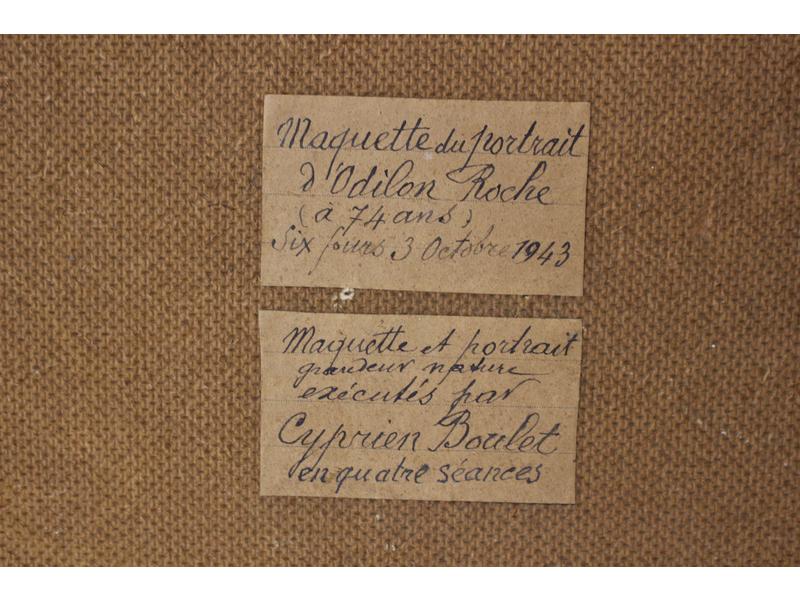 Maquette du portrait
d'Odilon Roche
(à 74 ans)
Six fours 3 Octobre 1943
Maquette et portrait
grandeur nature
exécutés par
Cyprien Boulet
en quatre séances